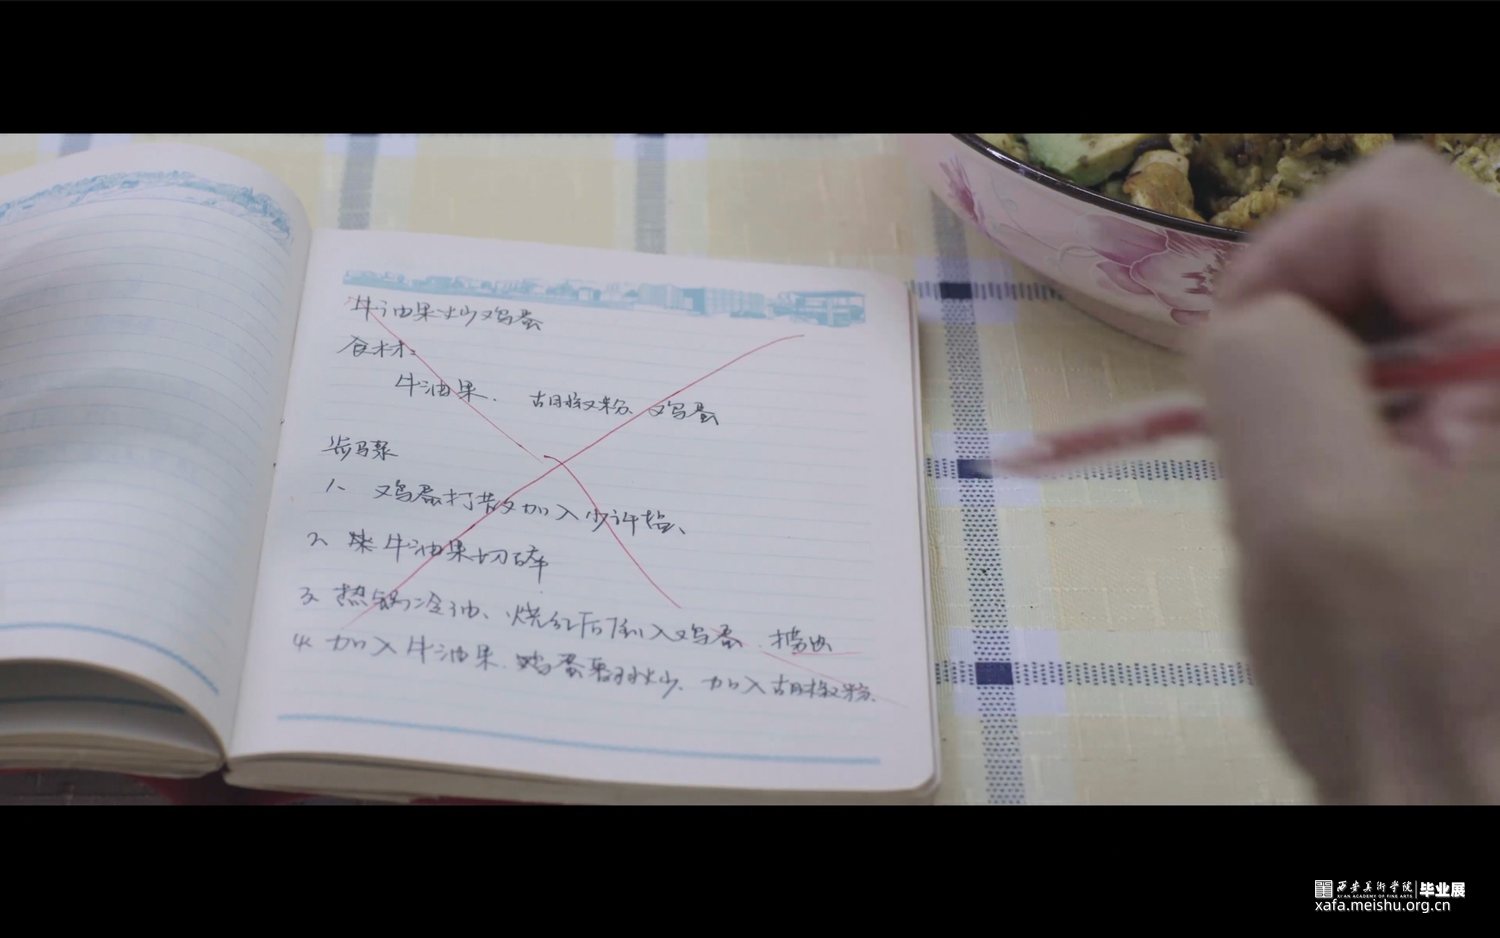 牛油果炒鸡蛋
食材：
牛油果、胡椒粉、鸡蛋
步骤
1、鸡蛋打散加入少许盐、
2、将牛油果切碎
3、热锅冷油、烧红后倒入鸡蛋、捣出
4、加入牛油果、鸡蛋翻炒、加入胡椒粉
西安美术学院 毕业展
XI'AN ACADEMY OF FINE ARTS
xafa.meishu.org.cn